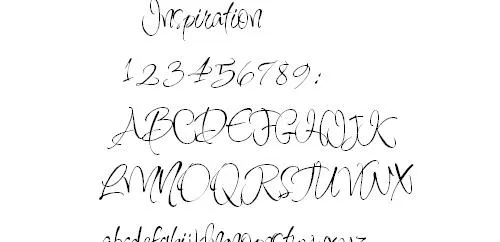 Inspiration
123456789:
ABCDEFGHIJK
LMNOPQRSTUVWX